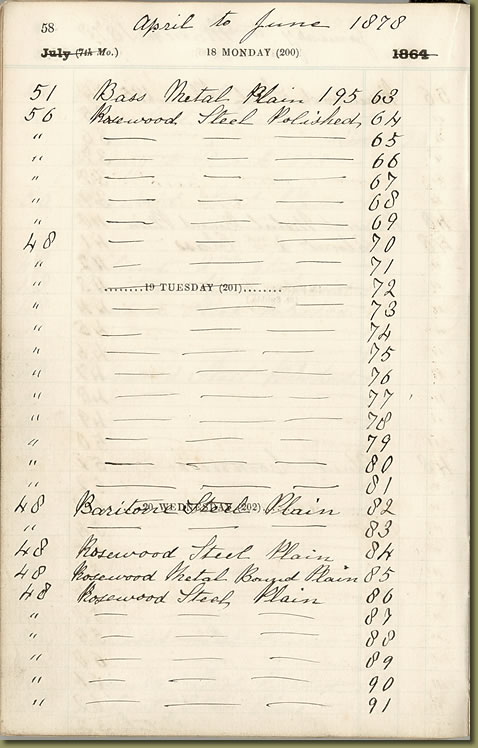 58 April to June 1878
July (7th Mo.) 18 MONDAY (200) 1864
51 Bass Metal Plain 195 63
56 Rosewood Steel Polished 64
" — — — 65
" — — — 66
" — — — 67
" — — — 68
" — — — 69
48 — — — 70
" — — — 71
........19 TUESDAY (201)........ 72
" — — — 73
" — — — 74
" — — — 75
" — — — 76
" — — — 77
" — — — 78
" — — — 79
" — — — 80
" — — — 81
20 WEDNESDAY (202)
48 Baritone Steel Plain 82
" — — — 83
48 Rosewood Steel Plain 84
48 Rosewood Metal Bound Plain 85
48 Rosewood Steel Plain 86
" — — — 87
" — — — 88
" — — — 89
" — — — 90
" — — — 91